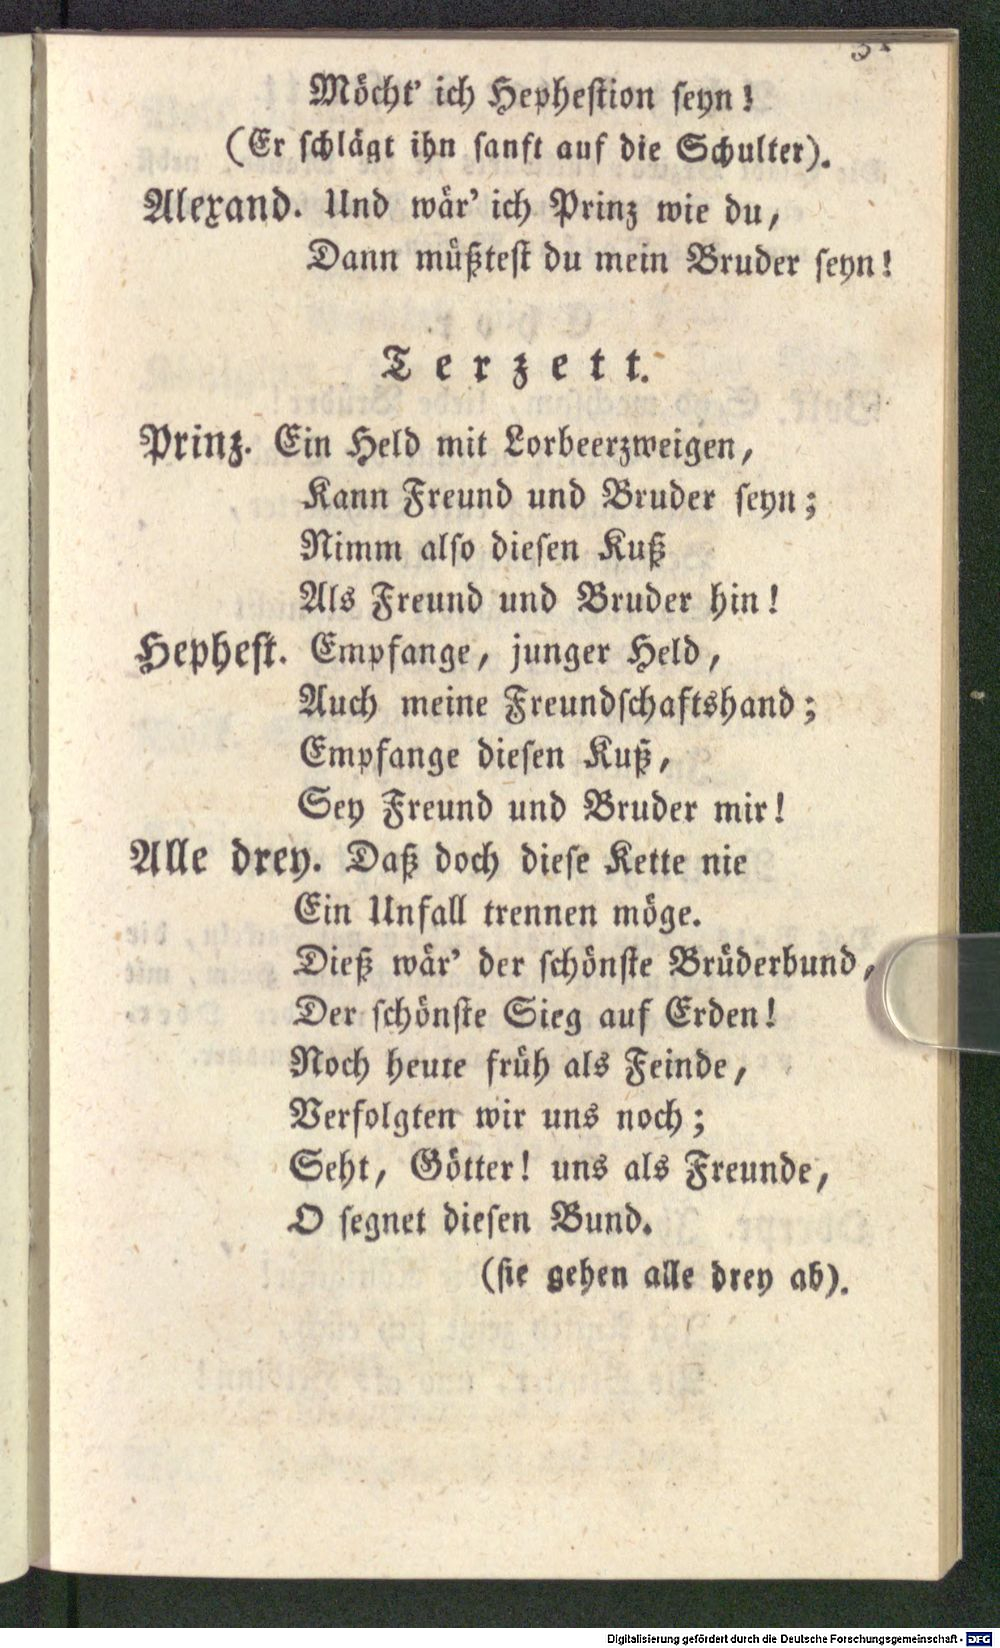 Möcht' ich Hephestion seyn!
(Er schlägt ihn sanft auf die Schulter).
Alexand. Und wär' ich Prinz wie du,
Dann müßtest du mein Bruder seyn!
Terzett.
Prinz. Ein Held mit Lorbeerzweigen,
Kann Freund und Bruder seyn;
Nimm also diesen Kuß
Als Freund und Bruder hin!
Hephest. Empfange, junger Held,
Auch meine Freundschaftshand;
Empfange diesen Kuß,
Sey Freund und Bruder mir!
Alle drey. Daß doch diese Kette nie
Ein Unfall trennen möge.
Dieß wär' der schönste Brüderbund,
Der schönste Sieg auf Erden!
Noch heute früh als Feinde,
Verfolgten wir uns noch;
Seht, Götter! uns als Freunde,
O segnet diesen Bund.
(sie gehen alle drey ab).
Digitalisierung gefördert durch die Deutsche Forschungsgemeinschaft - DFG